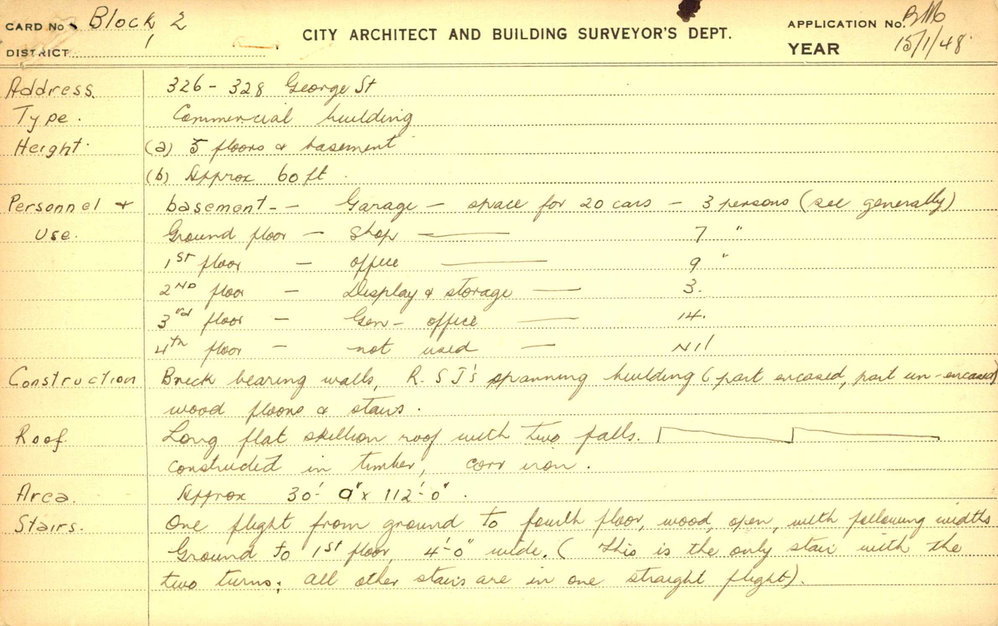 CARD No. Block 2
DISTRICT 1
CITY ARCHITECT AND BUILDING SURVEYOR'S DEPT.
APPLICATION No.
YEAR 15/1/48
Address. 326 - 328 George St
Type. Commercial building
Height. (a) 5 floors & basement
(b) Approx 60 ft.
Personnel & basement - - Garage - space for 20 cars - 3 persons (see generally)
Use. Ground floor - Shop - 7 "
1st floor - office - 9 "
2ND floor - Display & storage - 3.
3rd floor - Gen - office - 14.
4th floor - not used - Nil
Construction Brick bearing walls, R.S.J's spanning building (part encased, part un-encased)
wood floors & stairs.
Roof. Long flat skillion roof with two falls.
constructed in timber, corr iron.
Area. Approx 30'-9" x 112'-0".
Stairs. One flight from ground to fourth floor, wood open, with following widths
Ground to 1st floor 4'-0" wide. (This is the only stair with the
two turns; all other stairs are in one straight flight).